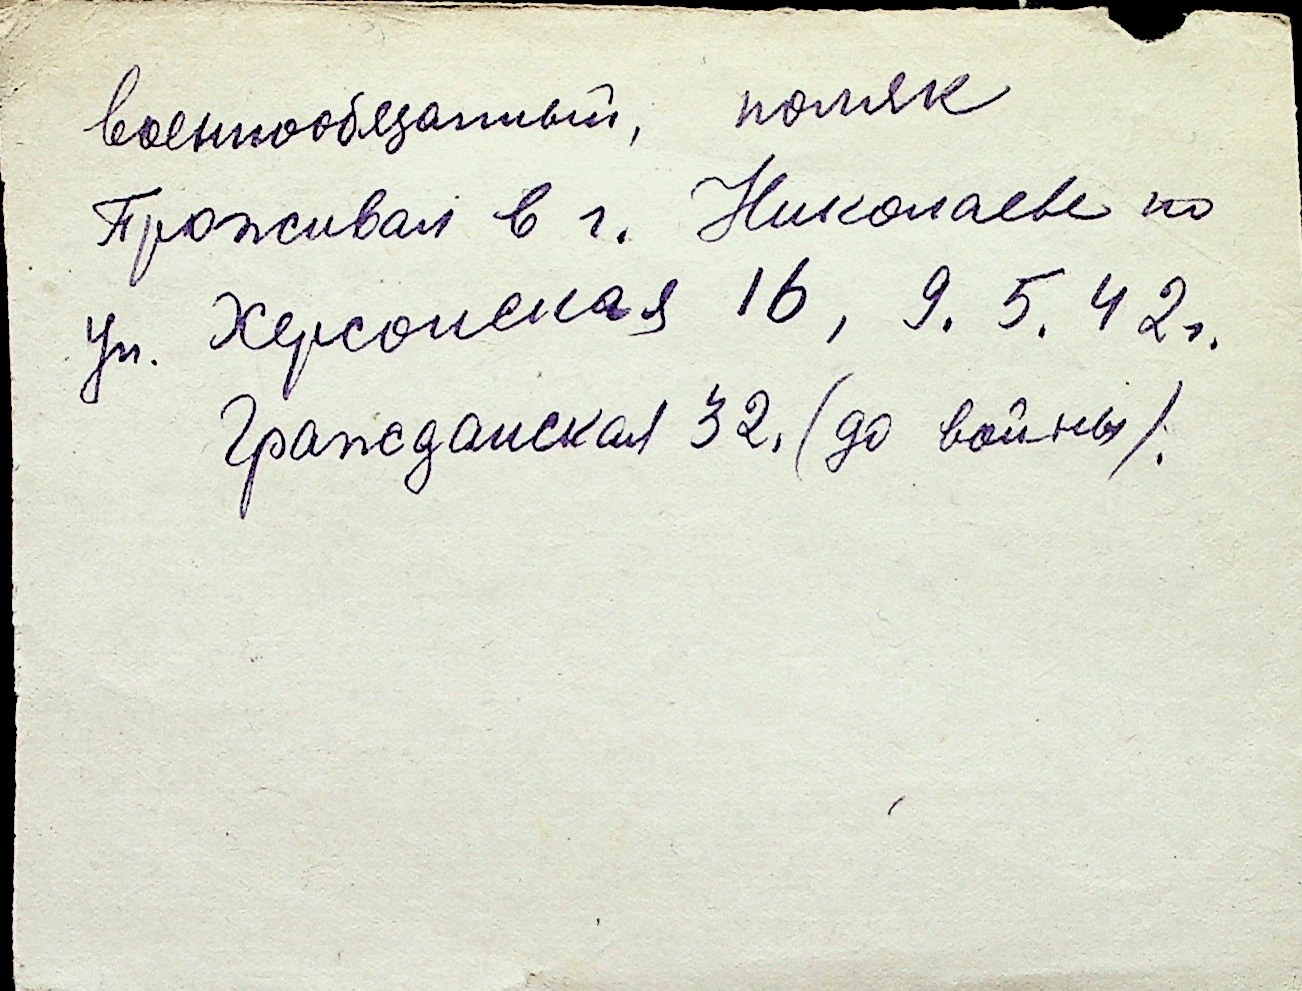 военнообязанный, поляк
Проживал в г. Николаеве по
ул. Херсонская 16, 9.5.42г.
Гражданская 32. (до войны).